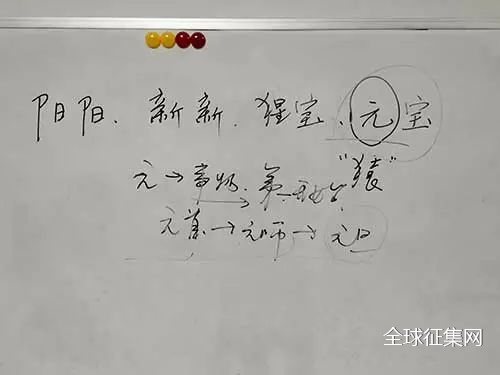 阳阳、新新、猩宝、元宝
"猿"
元→首场、第一
元首→元帅→元旦
全球征集网